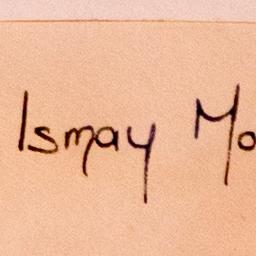 Ismay Mo